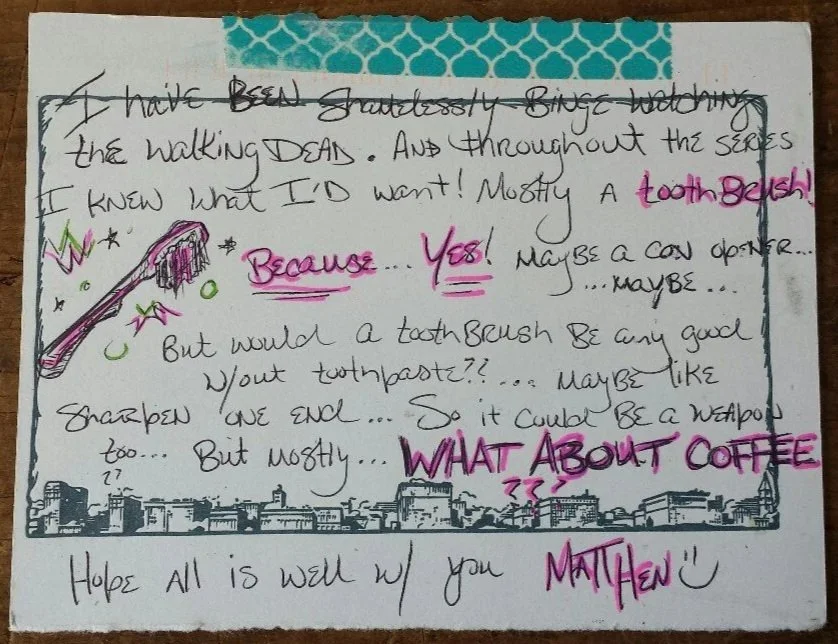 I have BEEN Shamelessly Binge Watching
the Walking DEAD. AND throughout the SERIES
I KNEW What I'D want! Mostly A toothBRUSH!
BECAUSE... YES! MAYBE A CAN OPENER...
...MAYBE...
But would a toothBRUSH BE any good
w/out toothpaste??... MAYBE like
SHARPEN ONE END... So it could BE A WEAPON
too... But mostly... WHAT ABOUT COFFEE
??
???
Hope All is well w/ you MATTHEW